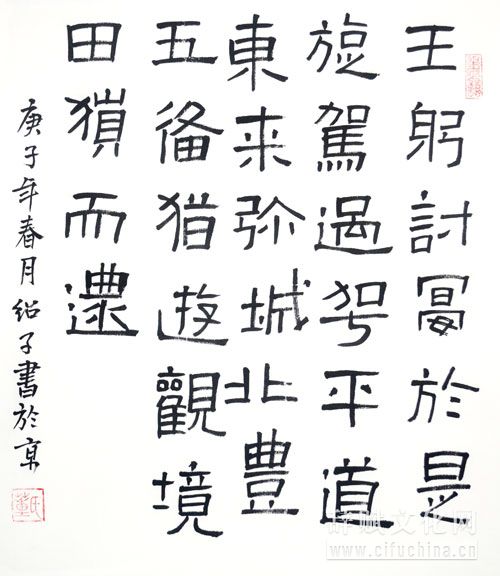 王躬討於是
旋駕過平道
東来弥城北豊
五備猶遊觀境
田獵而還
庚子年春月紹子書於京
辞赋文化网
www.cifuchina.cn